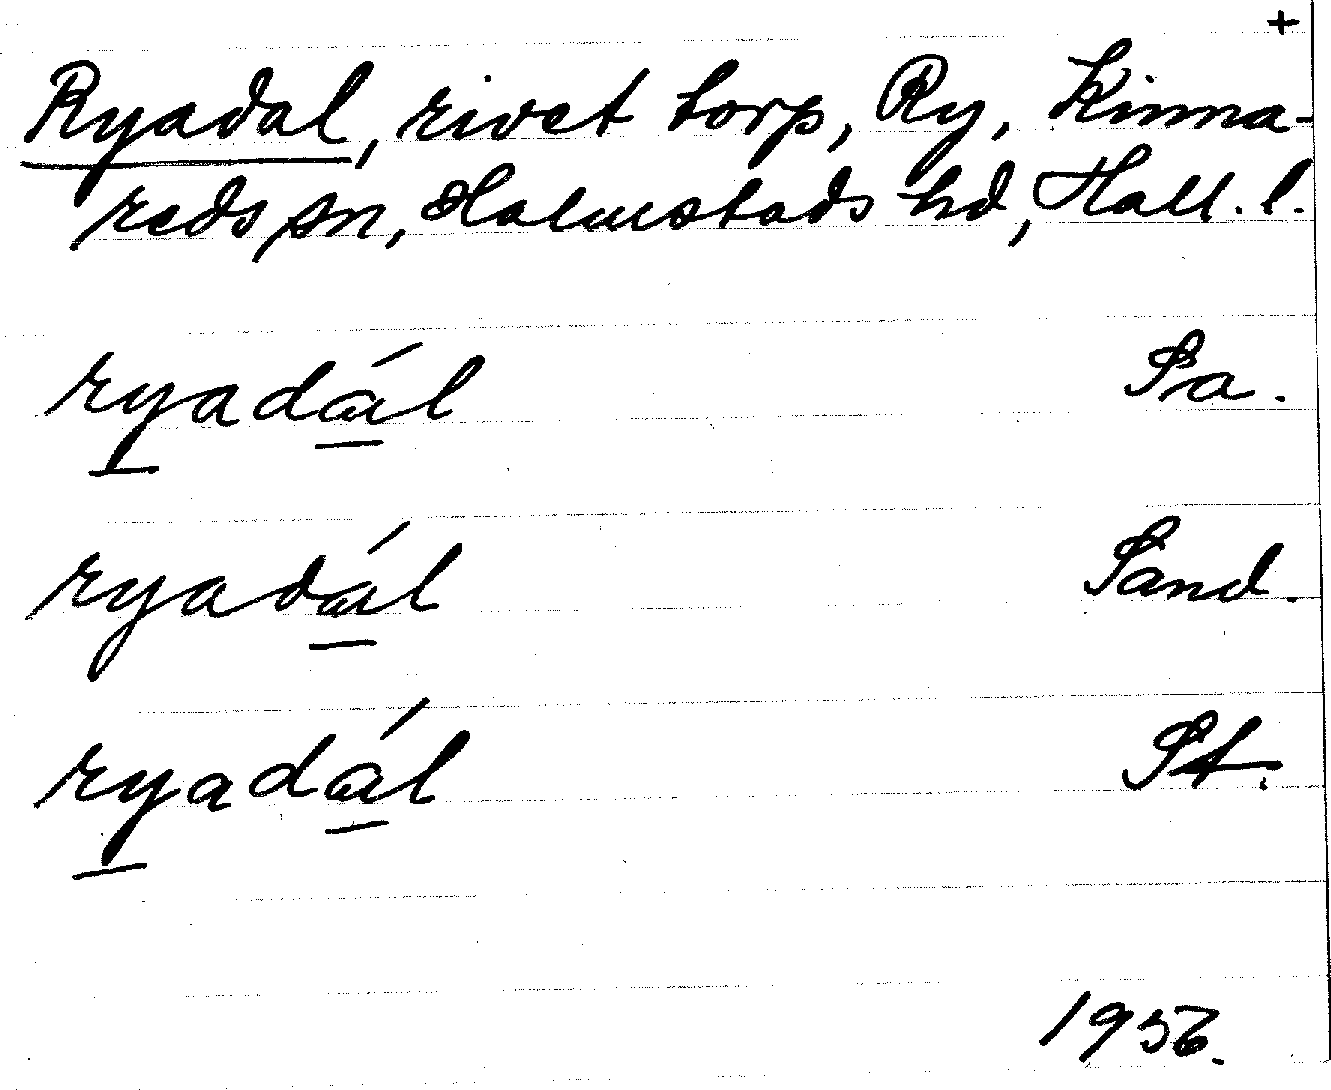 +
Ryadal, rivet torp, Ry, Kinna-
reds sn, Halmstads hd, Hall. l.
ryadál Pa.
ryadál Sand.
ryadál St.
1956.